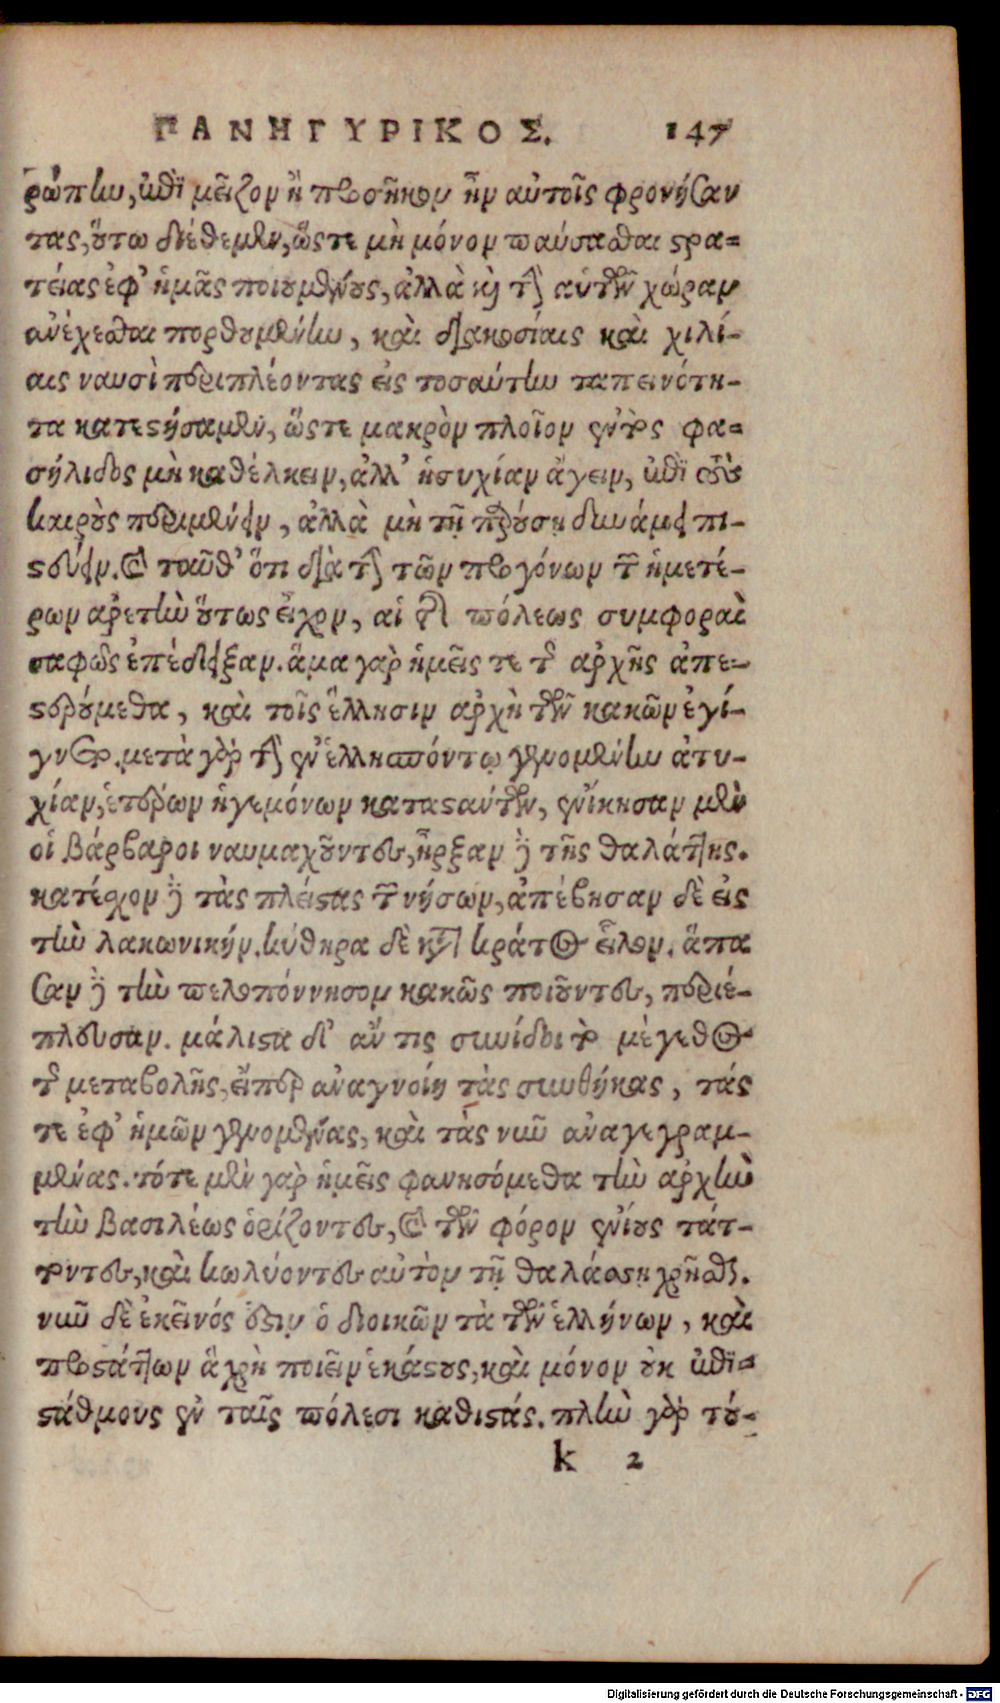 ΠΑΝΗΓΥΡΙΚΟΣ. 147
ρώπην, ἐπὶ μεῖζον ἢ προσῆκον ἦν αὐτοῖς φρονήσαν
τας, οὕτω διέθεμεν, ὥστε μὴ μόνον παύσασθαι στρα-
τείας ἐφ' ἡμᾶς ποιουμένους, ἀλλὰ καὶ τὴν αὑτῶν χώραν
ἀνέχεσθαι πορθουμένην, καὶ διακοσίαις καὶ χιλί-
αις ναυσὶ περιπλέοντας εἰς τοσαύτην ταπεινότη-
τα κατεστήσαμεν, ὥστε μακρὸν πλοῖον ἐντὸς φα-
σήλιδος μὴ καθέλκειν, ἀλλ' ἡσυχίαν ἄγειν, ἐπὶ τοὺς
καιροὺς περιμένειν, ἀλλὰ μὴ τῇ παρούσῃ δυνάμει πι-
στεύειν. καὶ ταῦθ' ὅτι διὰ τὴν τῶν προγόνων τῶν ἡμετέ-
ρων ἀρετὴν οὕτως εἶχον, αἱ τῆς πόλεως συμφοραὶ
σαφῶς ἐπέδειξαν. ἅμα γὰρ ἡμεῖς τε τῆς ἀρχῆς ἀπε-
στερούμεθα, καὶ τοῖς ἕλλησιν ἀρχὴ τῶν κακῶν ἐγί-
γνετο. μετὰ γὰρ τὴν ἐν ἑλλησπόντῳ γενομένην ἀτυ-
χίαν, ἑτέρων ἡγεμόνων καταστάντων, ἐνίκησαν μὲν
οἱ βάρβαροι ναυμαχοῦντες, ἦρξαν δὲ τῆς θαλάττης.
κατέσχον δὲ τὰς πλείστας τῶν νήσων, ἀπέβησαν δὲ εἰς
τὴν λακωνικήν. κύθηρα δὲ κατὰ κράτος εἷλον. ἅπα
σαν δὲ τὴν πελοπόννησον κακῶς ποιοῦντες, περιέ-
πλευσαν. μάλιστα δ' ἄν τις συνίδοι τὸ μέγεθος
τῆς μεταβολῆς, εἴπερ ἀναγνοίη τὰς συνθήκας, τάς
τε ἐφ' ἡμῶν γενομένας, καὶ τὰς νῦν ἀναγεγραμ-
μένας. τότε μὲν γὰρ ἡμεῖς φανησόμεθα τὴν ἀρχὴν
τὴν βασιλέως ὁρίζοντες, καὶ τῶν φόρον ἐνίους τάτ-
τοντες, καὶ κωλύοντες αὐτὸν τῇ θαλάσσῃ χρῆσθαι.
νῦν δὲ ἐκεῖνός ἐστιν ὁ διοικῶν τὰ τῶν ἑλλήνων, καὶ
προστάττων ἃ χρὴ ποιεῖν ἑκάστους, καὶ μόνον οὐκ ἐπι-
στάθμους ἐν ταῖς πόλεσι καθιστάς. πλὴν γὰρ τού-
k 2
Digitalisierung gefördert durch die Deutsche Forschungsgemeinschaft - DFG